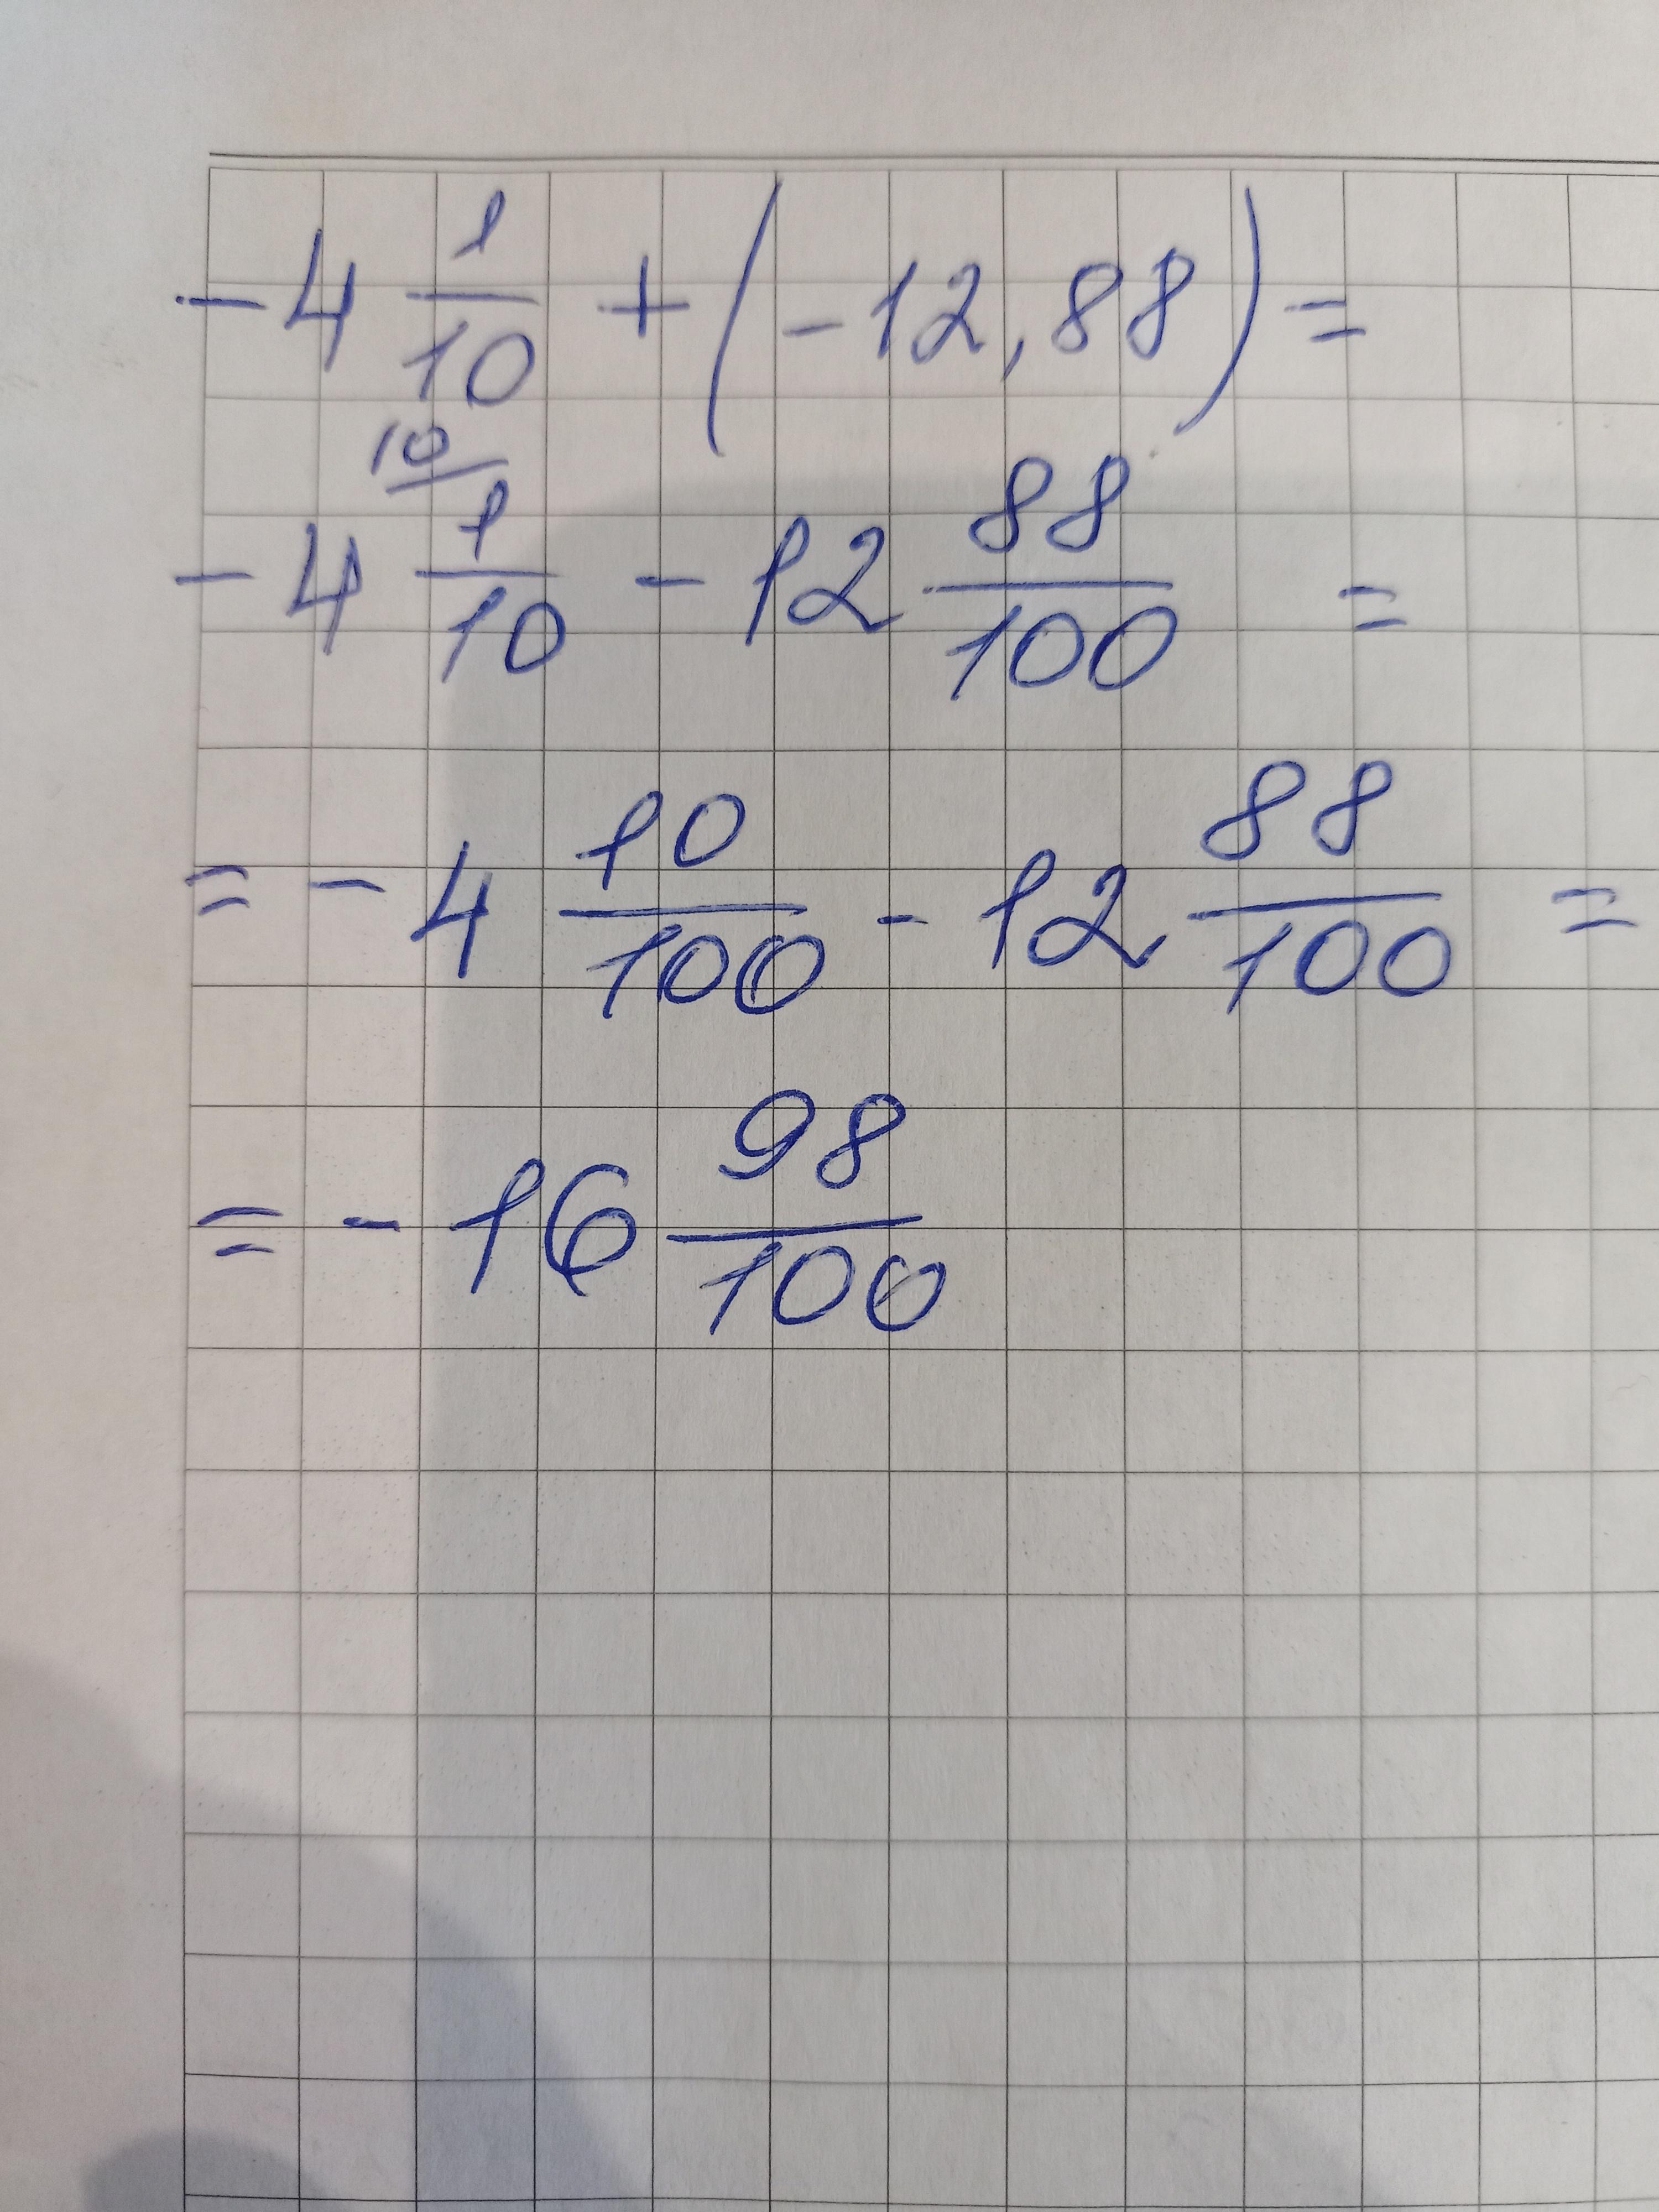 -4 1/10 + (-12,88) =
10
-4 1/10 - 12 88/100 =
= -4 10/100 - 12 88/100 =
= -16 98/100